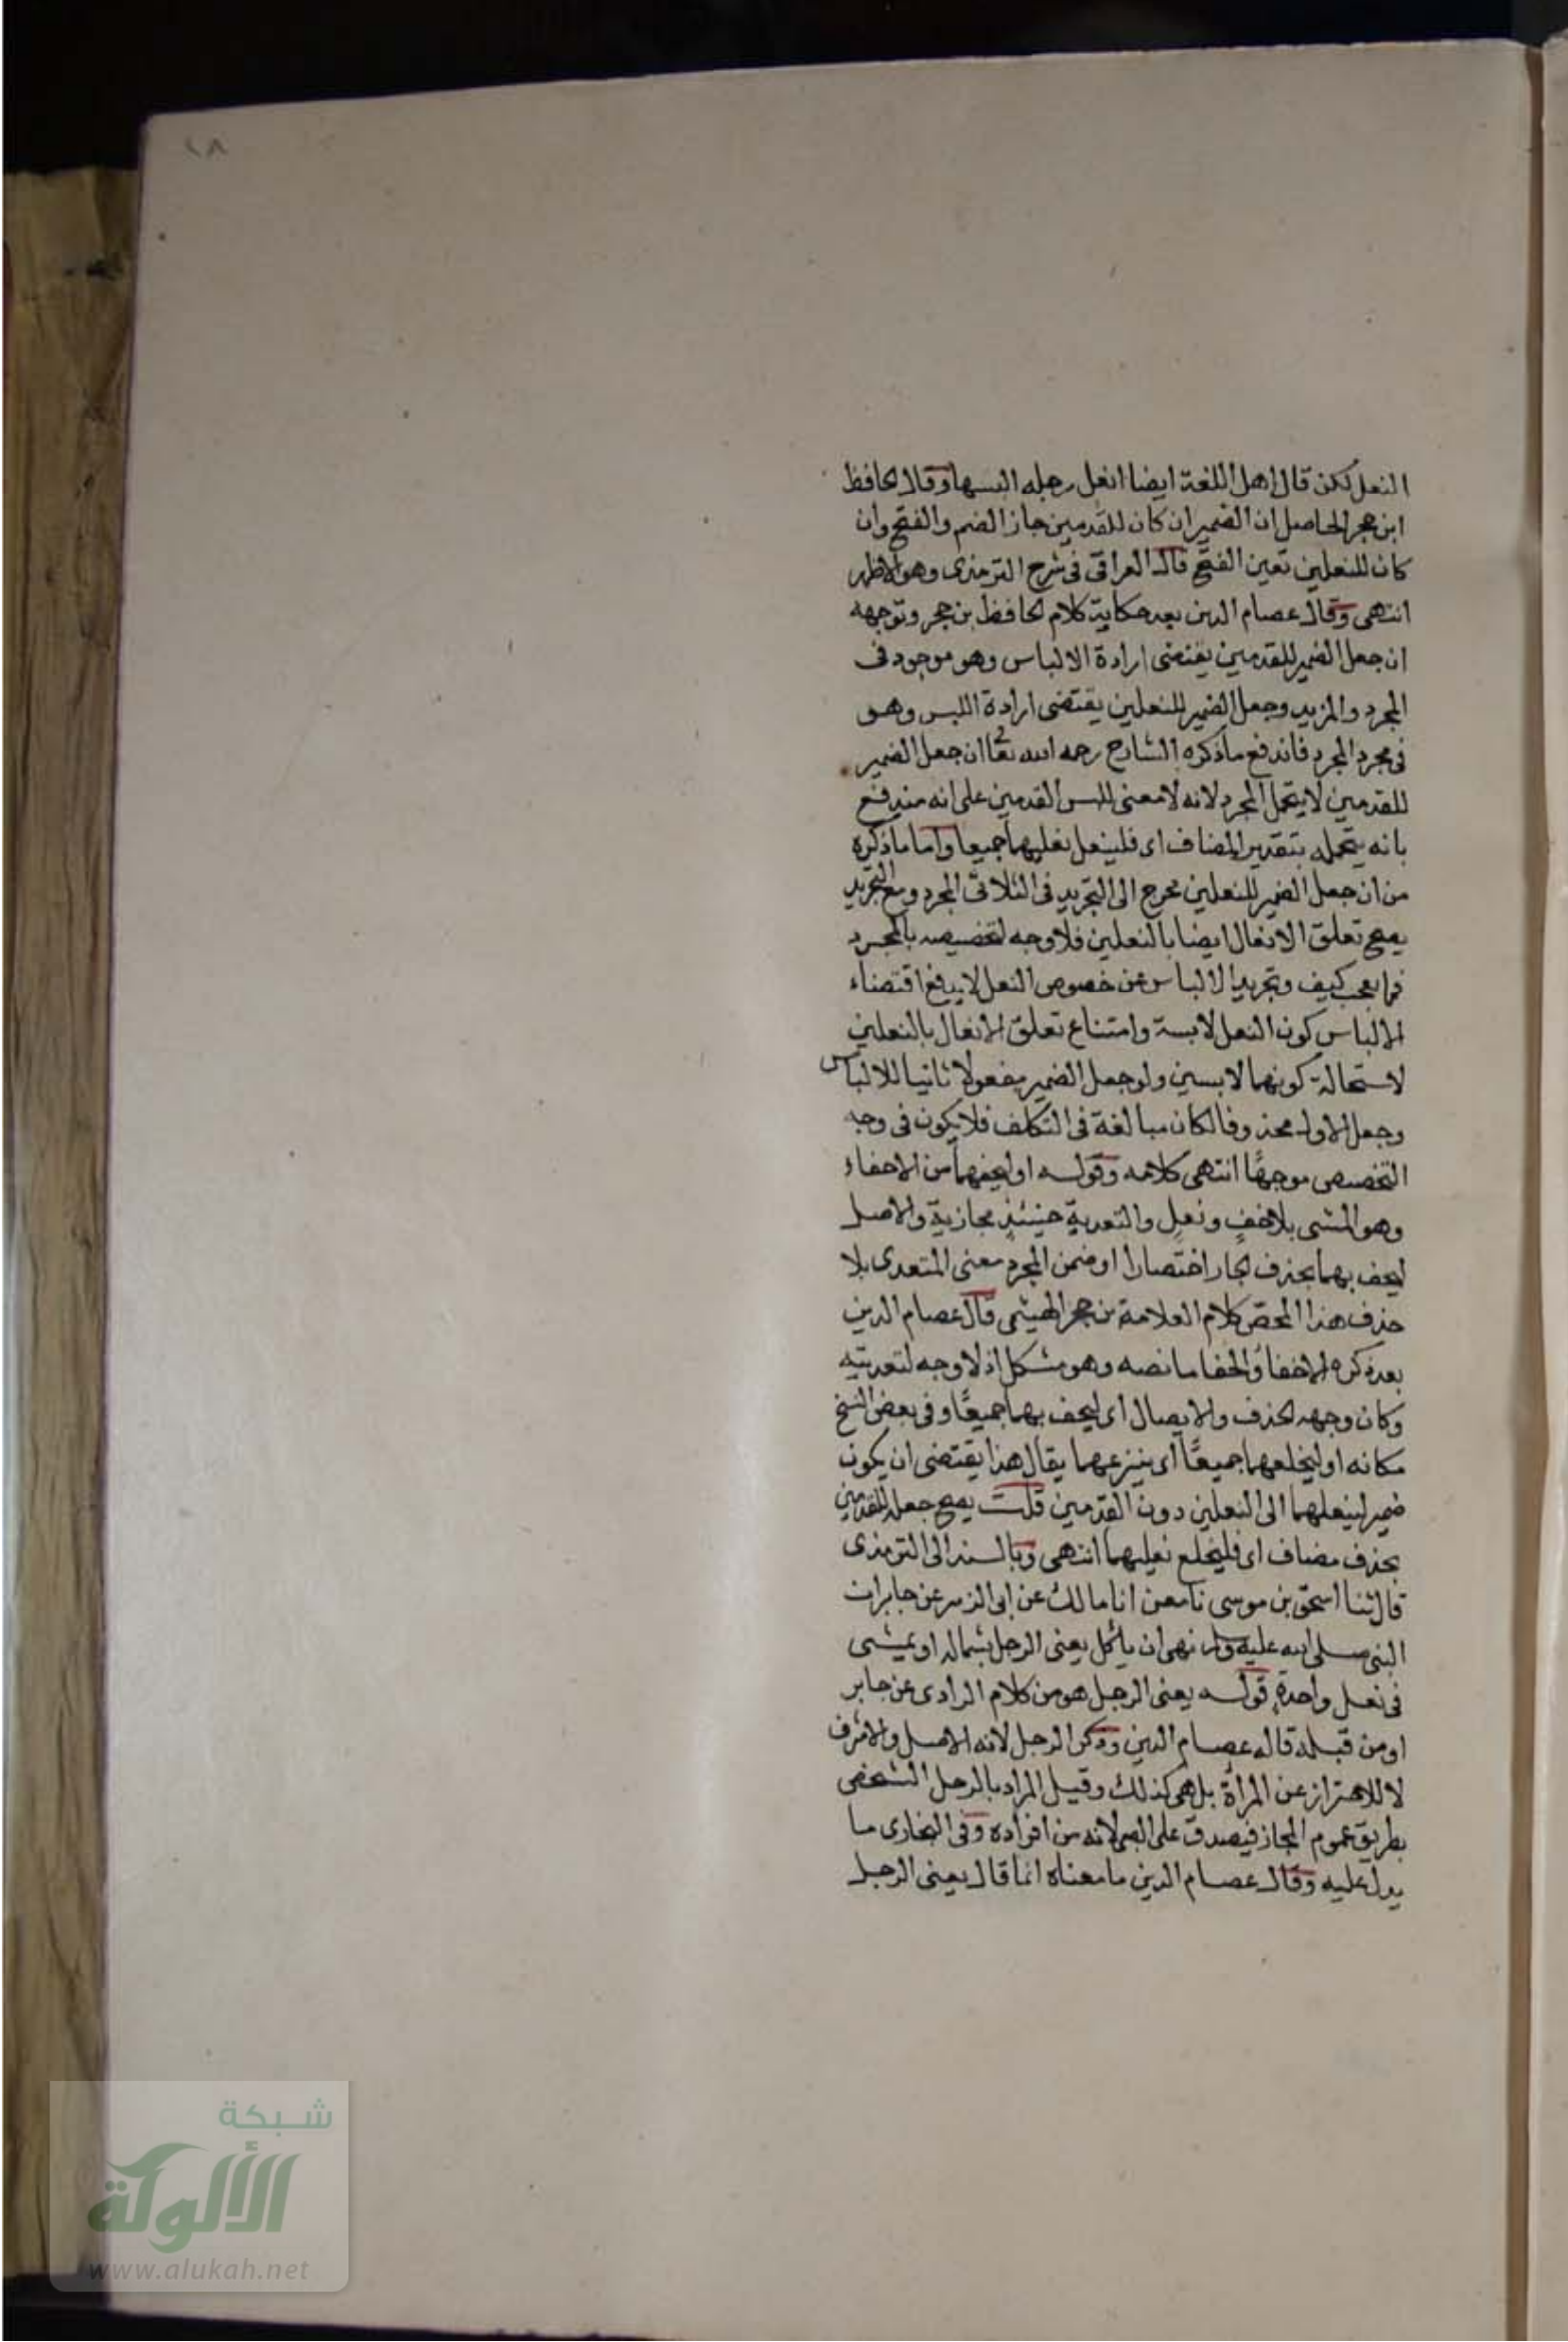 ١٨
النعل لكن قال اهل اللغة ايضا انعل رجله البسها وقال الحافظ
ابن حجر الحاصل ان الضمير ان كان للقدمين جاز الضم والفتح وان
كان للنعلين تعين الفتح قال العراقى فى شرح الترمذى وهو الاظهر
انتهى وقال عصام الدين بعد حكاية كلام الحافظ بن حجر وتوجهه
ان جعل الضمير للقدمين يقتضى ارادة الالباس وهو موجود فى
المجرد والمزيد وجعل الضمير للنعلين يقتضى ارادة اللبس وهو
فى مجرد المجرد فاندفع ما ذكره الشارح رحمه الله تعا ان جعل الضمير
للقدمين لا يتحمل المجرد لانه لا معنى للبس القدمين على انه مندفع
بانه يتحمله بتقدير المضاف اى فلينعل نعليهما جميعا واما ما ذكره
من ان جعل الضمير للنعلين محوج الى التجريد فى الثلاثى المجرد ومع التجريد
يصح تعلق الانعال ايضا بالنعلين فلا وجه لتخصيصه بالمجرد
فما يعجب كيف وتجريد الالباس عن خصوص النعل لا يدفع اقتضاء
الالباس كون النعل لابسة وامتناع تعلق الانعال بالنعلين
لاستحالة كونهما لابسين ولو جعل الضمير مفعولا ثانيا للالباس
وجعل الاول محذوفا لكان مبالغة فى التكلف فلا يكون فى وجه
التخصيص موجها انتهى كلامه وقوله او ليحفهما من الاحفاء
وهو المشى بلا خفٍ ونعلٍ والتعدية حينئذٍ مجازية والاصل
ليحف بهما بحذف الجار اختصارا او ضمن المجرد معنى المتعدى بلا
حذف هذا ملخص كلام العلامة بن حجر الهيثمى قال عصام الدين
بعد ذكره الاحفا والحفا ما نصه وهو مشكل اذ لا وجه لتعديته
وكان وجهه الحذف والايصال اى ليحف بهما جميعًا وفى بعض النسخ
مكانه او ليخلعهما جميعًا اى ينزعهما يقال هذا يقتضى ان يكون
ضمير لينعلهما الى النعلين دون القدمين قلت يصح جعله للقدمين
بحذف مضاف اى فليخلع نعليهما انتهى وبالسند الى الترمذى
قال ثنا اسحق بن موسى نا معن انا مالك عن ابى الزبير عن جابر ان
النبى صلى الله عليه وسلم نهى ان يأكل يعنى الرجل بشماله او يمشى
فى نعل واحدة قوله يعنى الرجل هو من كلام الراوى عن جابر
او من قبله قاله عصام الدين وذكر الرجل لانه الاصل والاشرف
لا للاحتراز عن المرأة بل هى كذلك وقيل المراد بالرجل الشخص
بطريق عموم المجاز فيصدق على الصبى لانه من افراده وفى البخارى ما
يدل عليه وقال عصام الدين ما معناه انما قال يعنى الرجل
شبكة
الألوكة
www.alukah.net